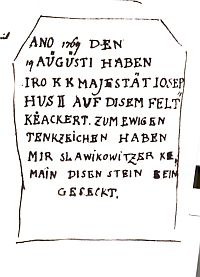 ANO 1769 DEN
19 AÜGÜSTI HABEN
IRO K K MAJESTÄT IOSEP
HUS II AUF DISEM FELT
KĒACKERT. ZUM EWIGEN
TENKZEICHEN HABEN
MIR SLAWIKOWITZER KE,
MAIN DISEN STEIN BEIN
GESECKT.